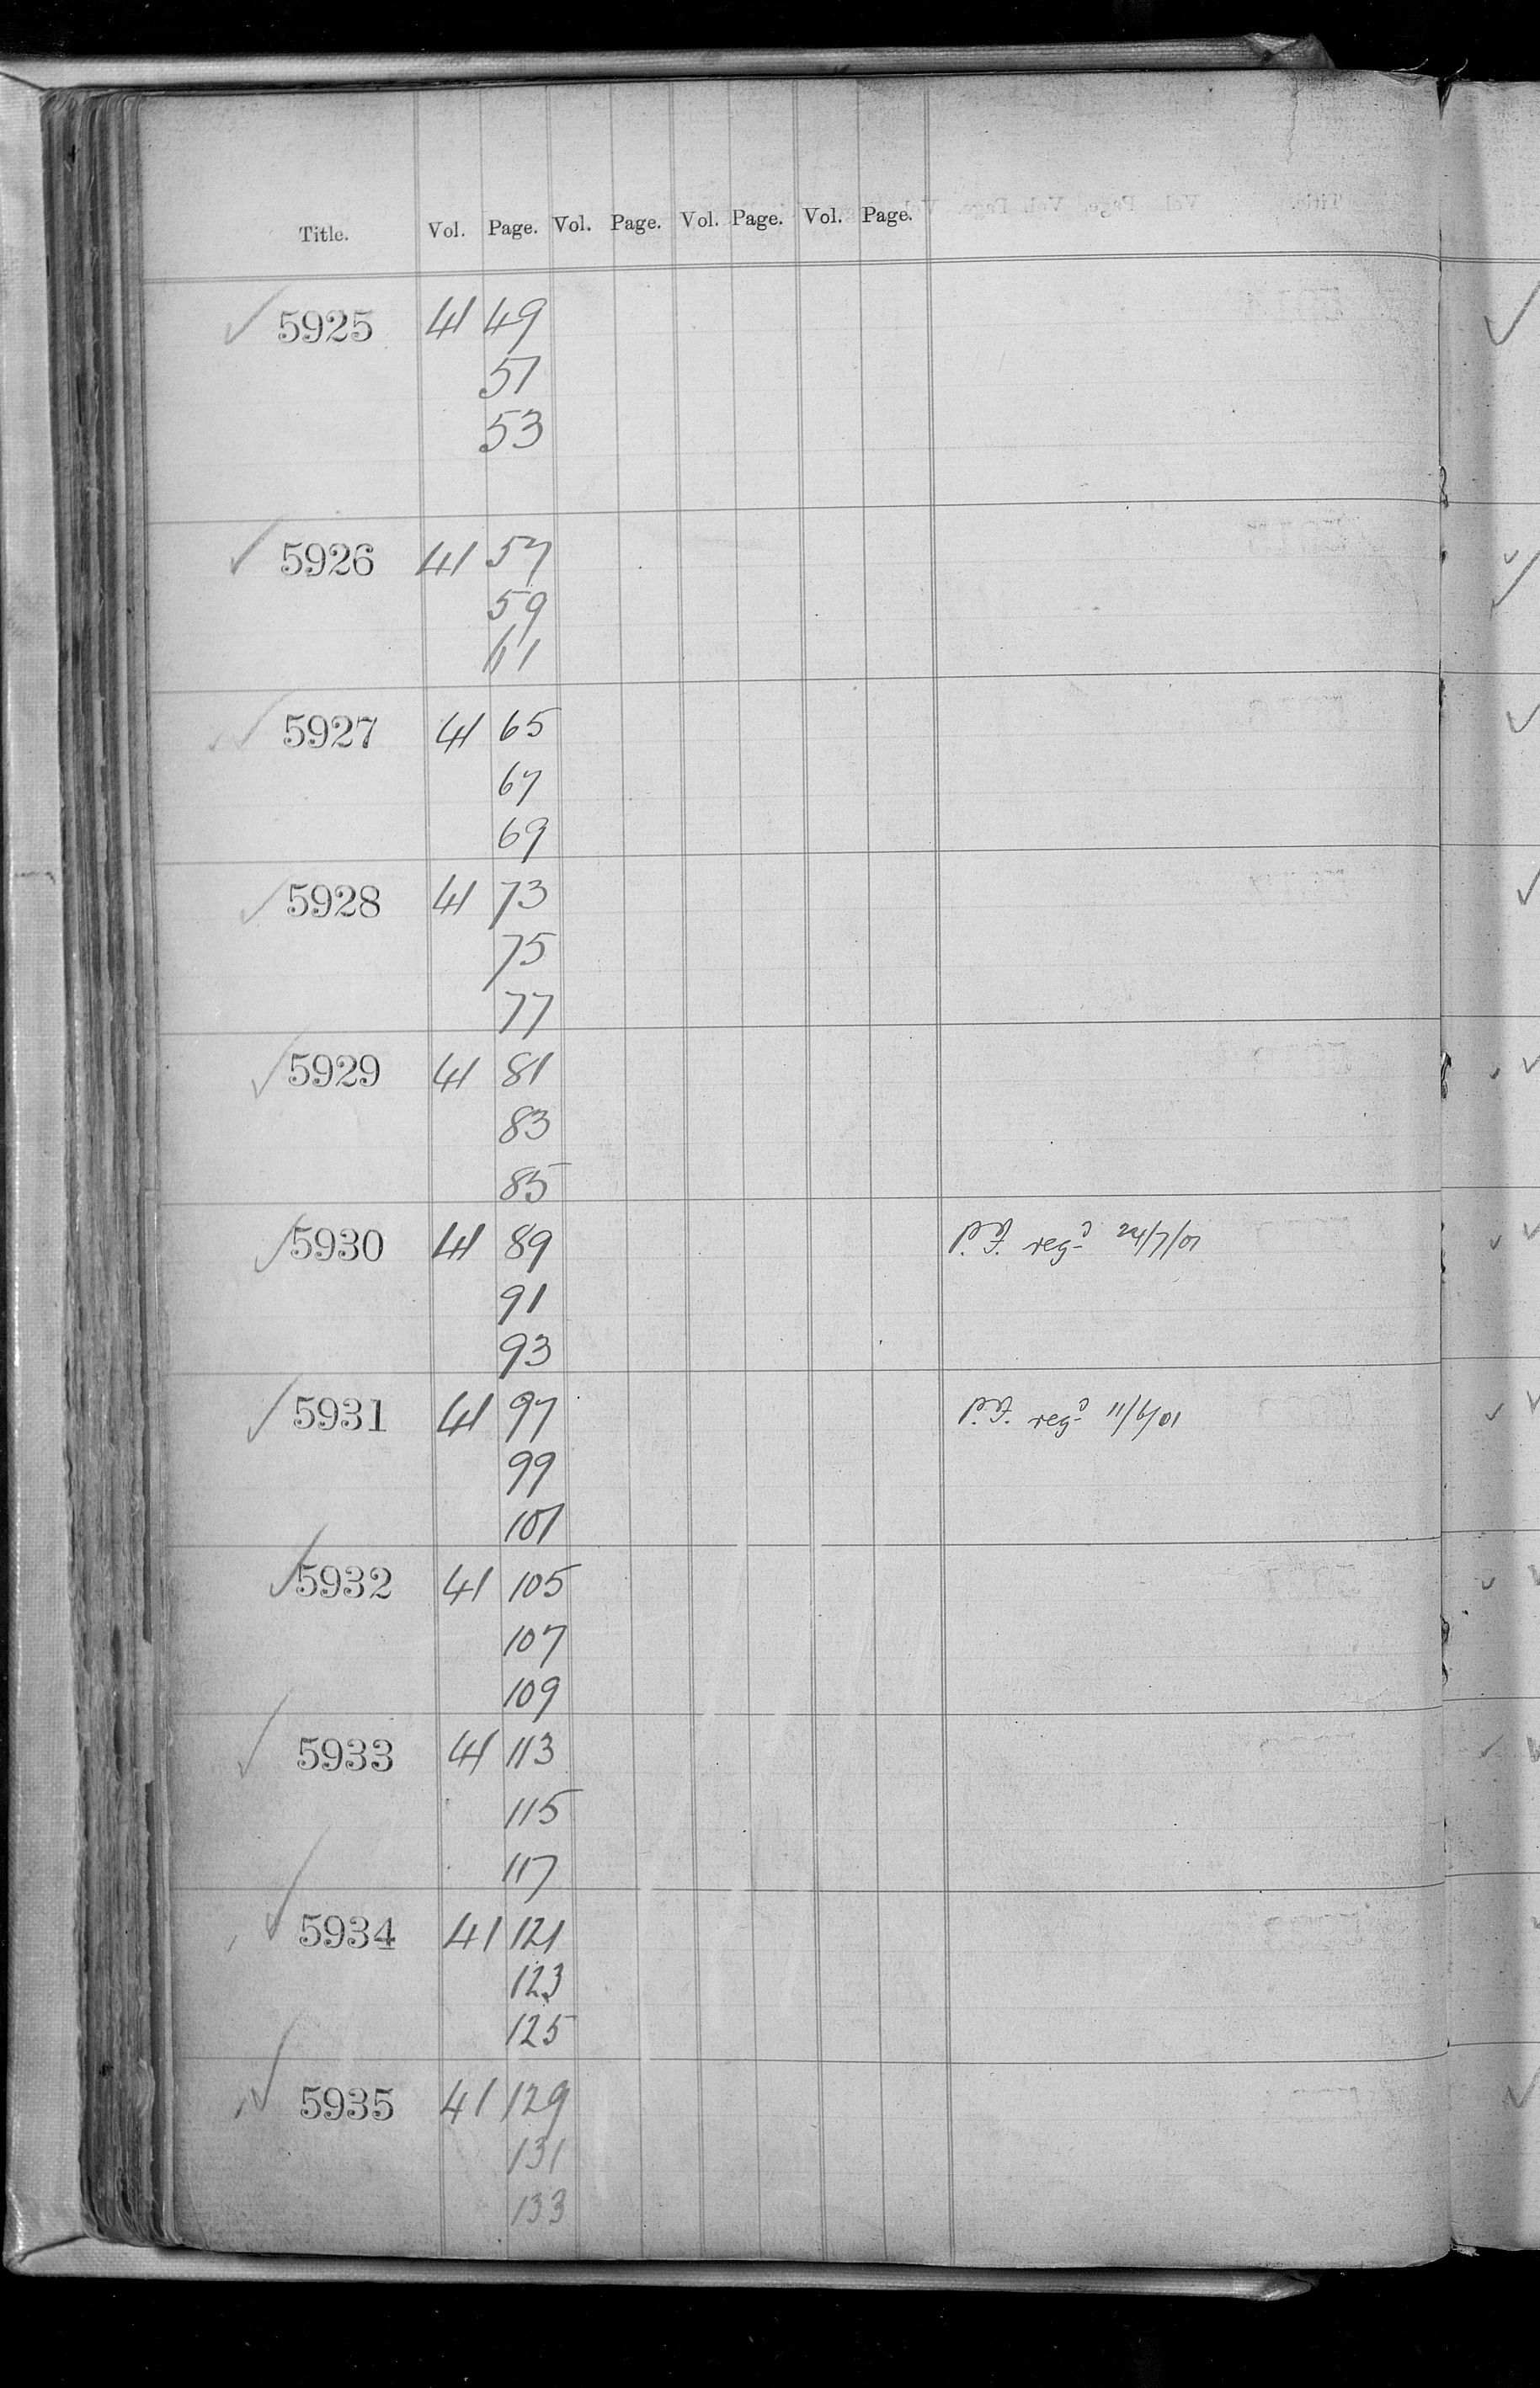 Title. Vol. Page. Vol. Page. Vol. Page. Vol. Page.
5925 41 49
51
53
5926 41 57
59
61
5927 41 65
67
69
5928 41 73
75
77
5929 41 81
83
85
5930 41 89 P.F. regd 24/7/01
91
93
5931 41 97 P.F. regd 11/6/01
99
101
5932 41 105
107
109
5933 41 113
115
117
5934 41 121
123
125
5935 41 129
131
133